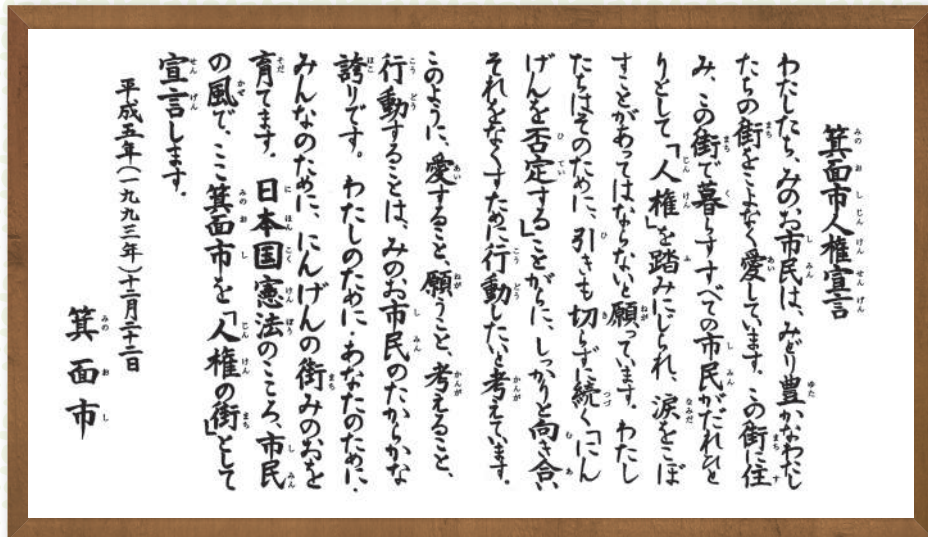 箕面市人権宣言
わたしたち、みのお市民は、みどり豊かなわたし
たちの街をこよなく愛しています。この街に住
み、この街で暮らすすべての市民がだれひと
りとして「人権」を踏みにじられ、涙をこぼ
すことがあってはならないと願っています。わたし
たちはそのために、引きも切らずに続く「にん
げんを否定する」ことがらに、しっかりと向き合い、
それをなくすために行動したいと考えています。
このように、愛すること、願うこと、考えること、
行動することは、みのお市民のたからかな
誇りです。わたしのために・あなたのために・
みんなのために、にんげんの街みのおを
育てます。日本国憲法のこころ、市民
の風で、ここ箕面市を「人権の街」として
宣言します。
平成五年(一九九三年)十二月二十二日
箕面市